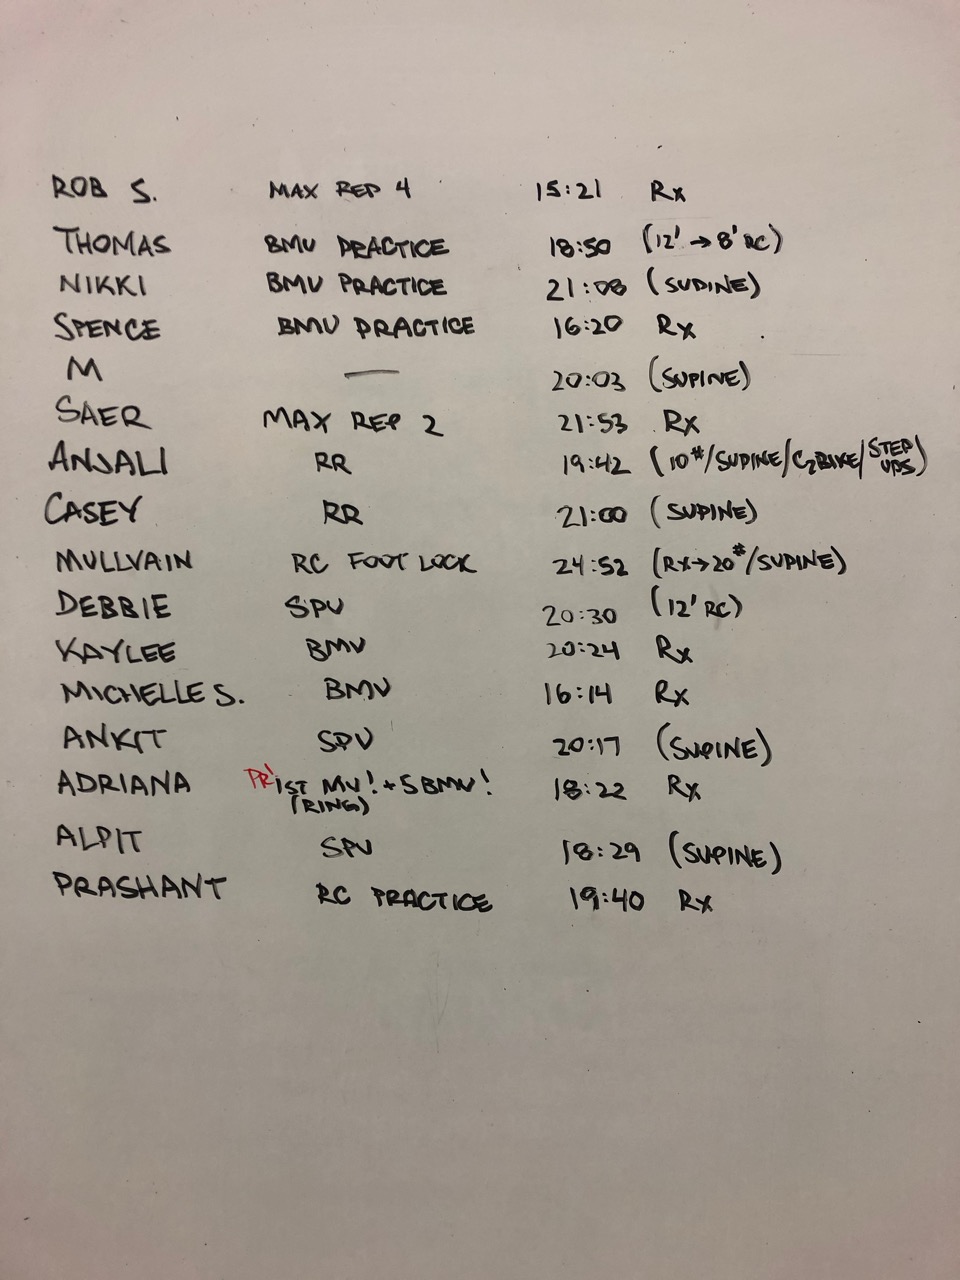 ROB S. MAX REP 4 15:21 Rx
THOMAS BMU PRACTICE 18:50 (12' → 8' RC)
NIKKI BMU PRACTICE 21:08 (SUPINE)
SPENCE BMU PRACTICE 16:20 Rx
M — 20:03 (SUPINE)
SAER MAX REP 2 21:53 Rx
ANJALI RR 19:42 (10#/SUPINE/C2BIKE/STEP UPS)
CASEY RR 21:00 (SUPINE)
MULLVAIN RC FOOT LOCK 24:52 (Rx→20#/SUPINE)
DEBBIE SPU 20:30 (12' RC)
KAYLEE BMU 20:24 Rx
MICHELLE S. BMU 16:14 Rx
ANKIT SPU 20:17 (SUPINE)
ADRIANA PR! 1ST MU! + 5 BMU! 18:22 Rx
(RING)
ALPIT SPU 18:29 (SUPINE)
PRASHANT RC PRACTICE 19:40 Rx